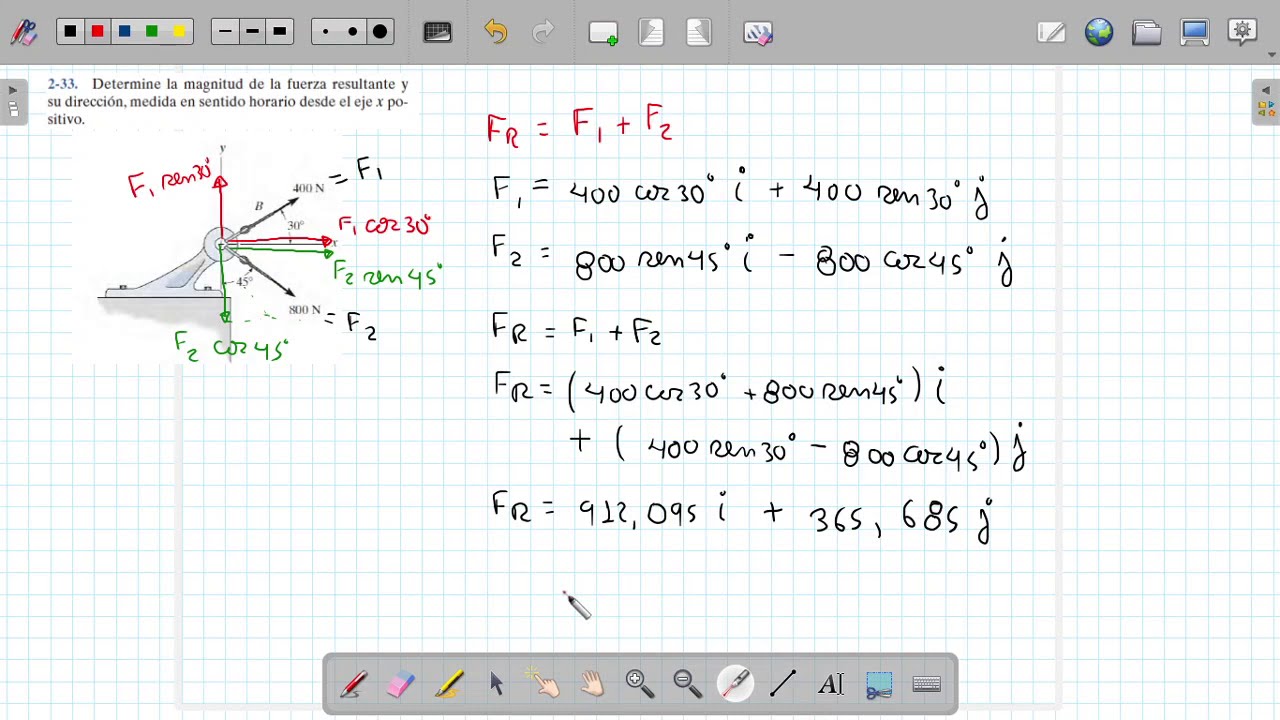 2-33. Determine la magnitud de la fuerza resultante y
su dirección, medida en sentido horario desde el eje x po-
sitivo.
y
F1 sen30°
400 N = F1
B
30°
F1 cos30°
x
F2 sen45°
45°
800 N = F2
F2 cos45°
FR = F1 + F2
F1 = 400 cos30° i + 400 sen30° j
F2 = 800 sen45° i - 800 cos45° j
FR = F1 + F2
FR = (400 cos30° + 800 sen45°) i
+ (400 sen30° - 800 cos45°) j
FR = 912,095 i + 365,685 j
AI